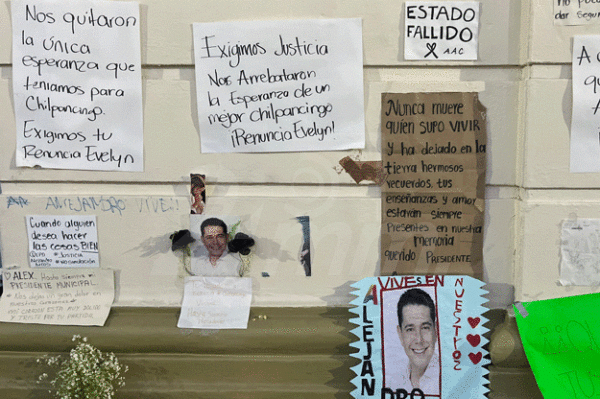 Nos quitaron
la única
esperanza que
teníamos para
Chilpancingo.
Exigimos tu
Renuncia Evelyn
Exigimos Justicia
Nos Arrebataron
la Esperanza de un
mejor chilpancingo
¡Renuncia Evelyn!
ESTADO
FALLIDO
AAC
Nunca muere
quien supo VIVIR
y ha dejado en la
tierra hermosos
recuerdos, tus
enseñanzas y amor
estarán siempre
Presentes en nuestra
memoria
querido PRESIDENTE
ALEJANDRO VIVE!!
Cuando alguien
desea hacer
las cosas BIEN
#Justicia
ALEX. Hasta siempre
PRESIDENTE MUNICIPAL
VIVES EN
NUESTROS
ALEJANDRO
¡¡QU